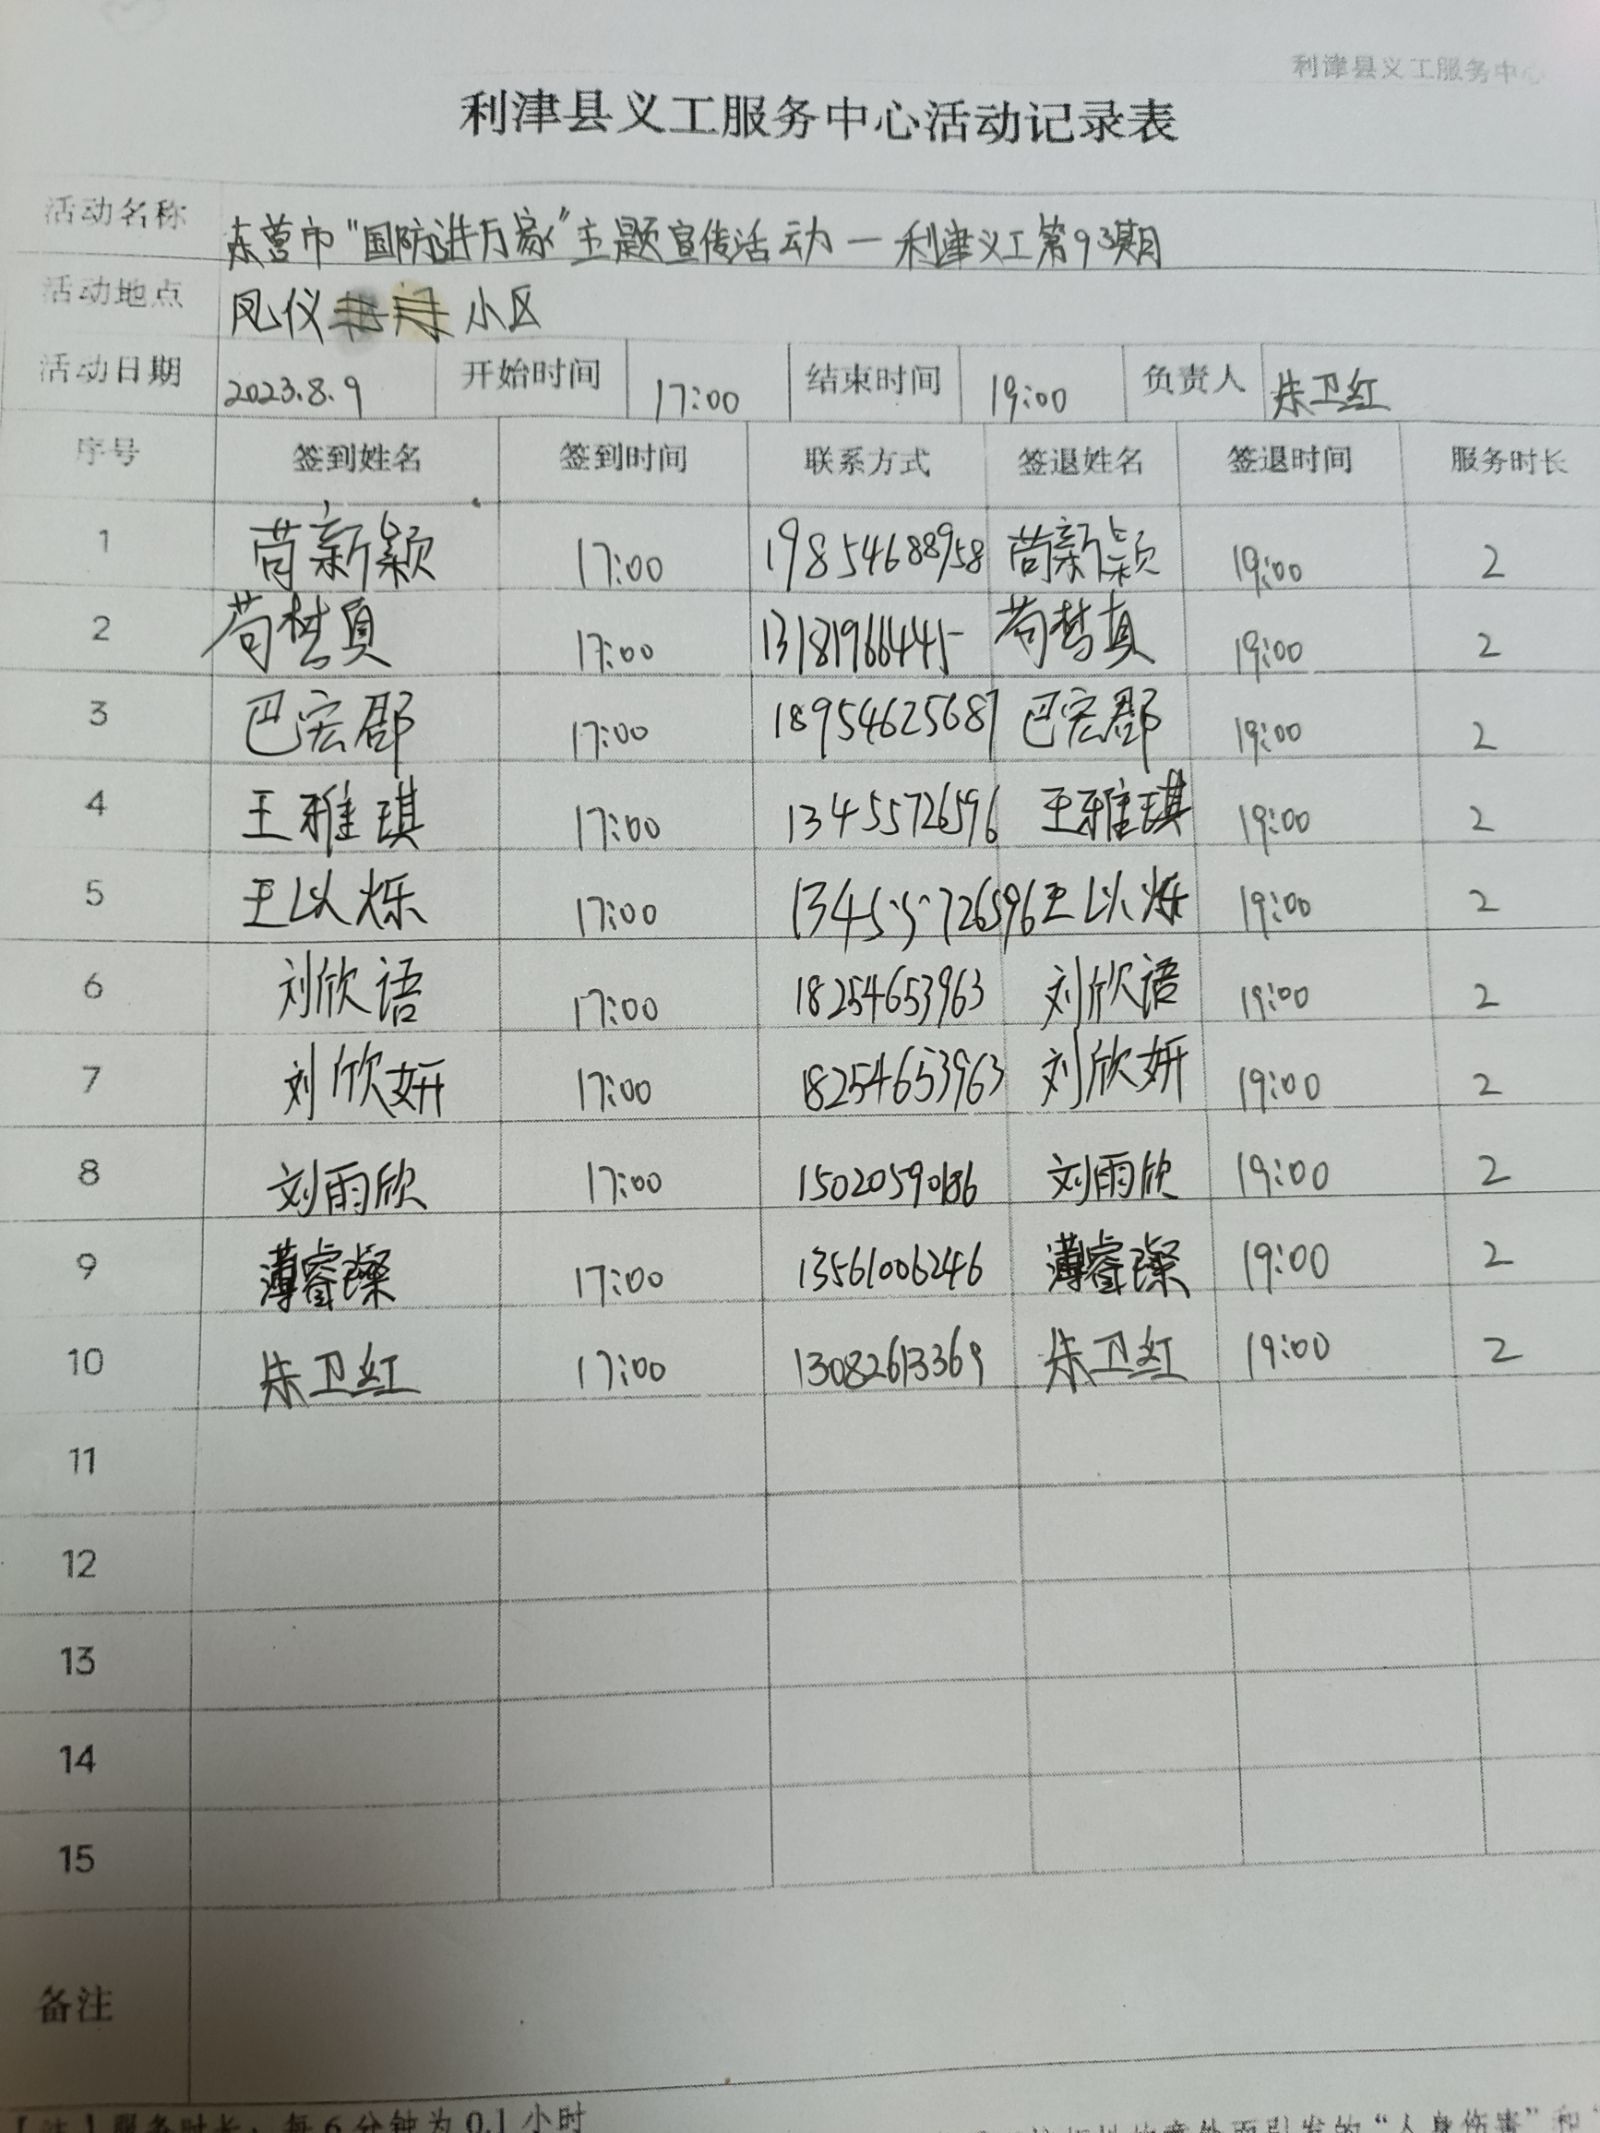 利津县义工服务中心
利津县义工服务中心活动记录表
活动名称 东营市“国防进万家”主题宣传活动—利津义工第93期
活动地点 凤仪 小区
活动日期 2023.8.9 开始时间 17:00 结束时间 19:00 负责人 朱卫红
序号 签到姓名 签到时间 联系方式 签退姓名 签退时间 服务时长
1 苘新颖 17:00 19854688958 苘新颖 19:00 2
2 苟梦真 17:00 13181966445 苟梦真 19:00 2
3 巴宏郡 17:00 18954625687 巴宏郡 19:00 2
4 王雅琪 17:00 13455726596 王雅琪 19:00 2
5 王以烁 17:00 13455726596 王以烁 19:00 2
6 刘欣语 17:00 18254653963 刘欣语 19:00 2
7 刘欣妍 17:00 18254653963 刘欣妍 19:00 2
8 刘雨欣 17:00 15020590186 刘雨欣 19:00 2
9 薄睿璨 17:00 13561006246 薄睿璨 19:00 2
10 朱卫红 17:00 13082613369 朱卫红 19:00 2
11
12
13
14
15
备注
【注】服务时长：每6分钟为0.1小时 意外而引发的“人身伤害”和“